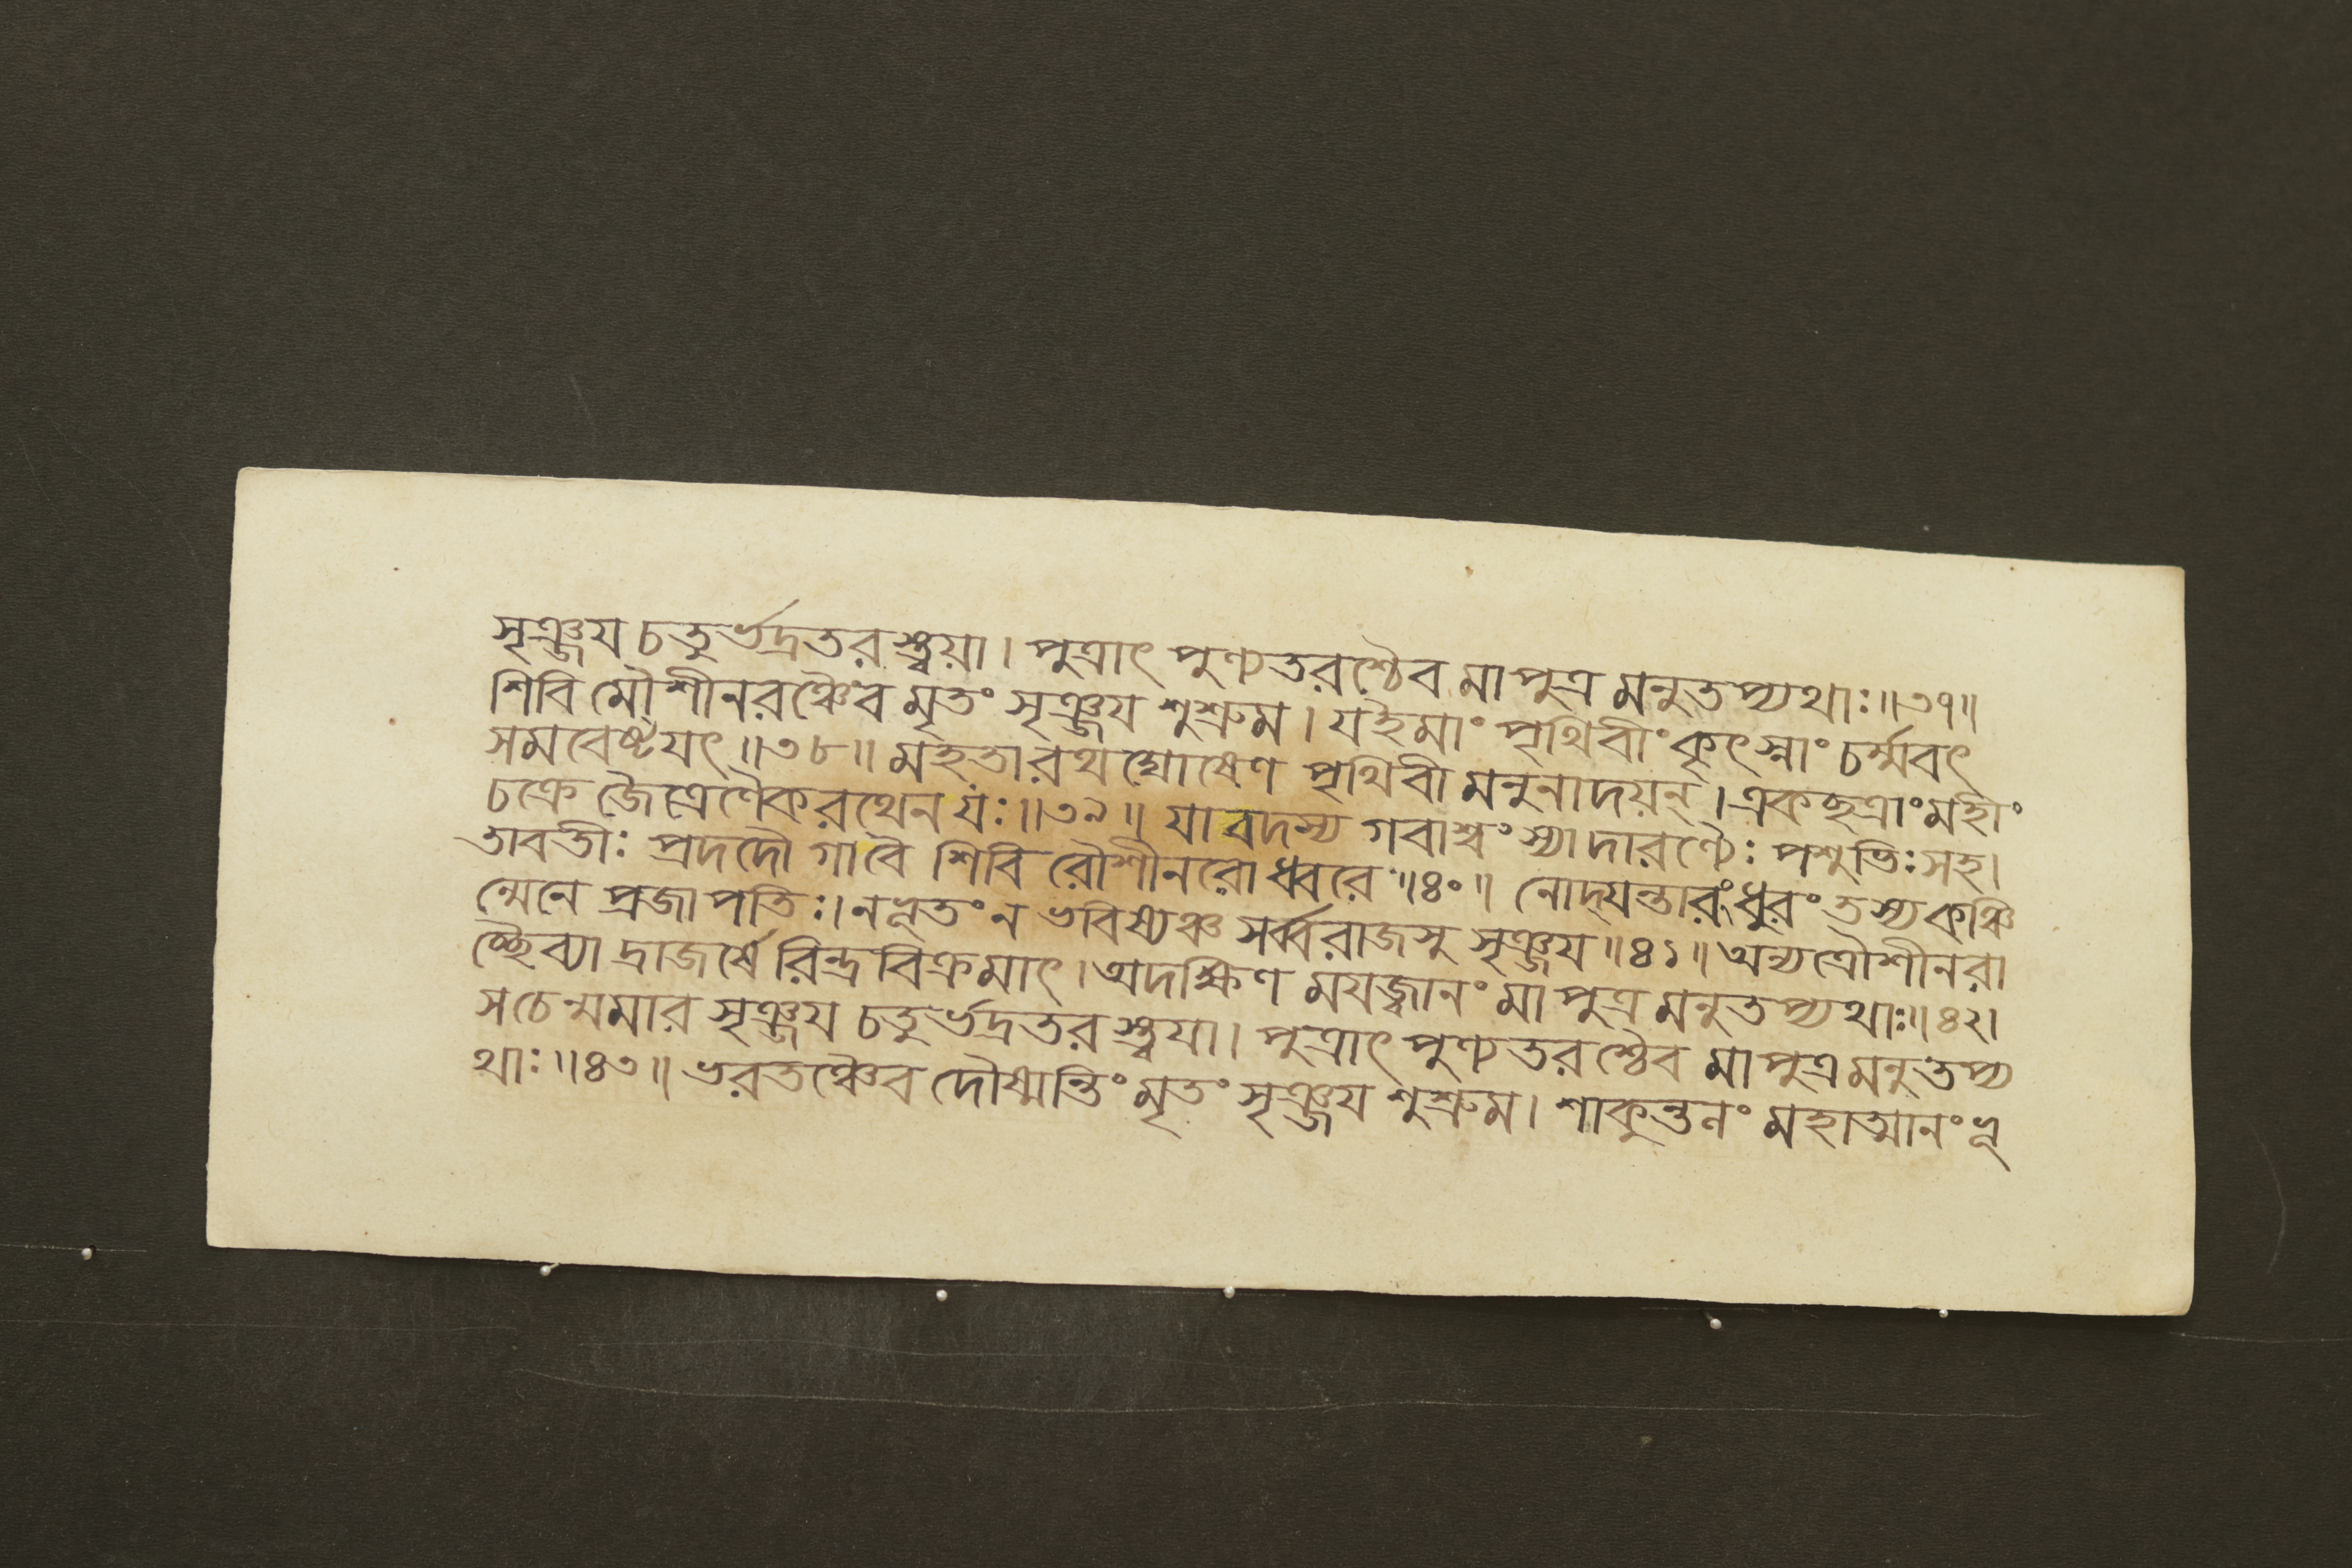 সৃঞ্জয চতুর্ভদ্রতরস্ত্বয়া। পুত্রাৎ পুণ্যতরশ্চৈব মা পুত্র মনুতপ্যথাঃ॥৩৭॥
শিবি মৌশীনরঞ্চৈব মৃতং সৃঞ্জয শুশ্রুম। যইমাং পৃথিবীং কৃৎস্নাং চর্ম্মবৎ
সমবেষ্টযৎ॥৩৮॥ মহতা রথঘোষেণ পৃথিবী মনুনাদয়ন্। একছত্রাং মহীং
চক্রে জৈত্রেণৈকরথেন যঃ॥৩৯॥ যাবদস্য গবাশ্বং স্যাদারণ্যৈঃ পশুভিঃ সহ।
তাবতীঃ প্রদদৌ গাবৈ শিবি রৌশীনরোধ্বরে॥৪০॥ নোদ্যন্তারং ধুরং তস্য কঞ্চি
ন্মেনে প্রজাপতিঃ। ন ভূতং ন ভবিষ্যঞ্চ সর্ব্বরাজসু সৃঞ্জয॥৪১॥ অন্যত্রৌশীনরা
চ্ছৈব্যা দ্রাজর্ষে রিন্দ্রবিক্রমাৎ। অদক্ষিণ মযজ্বানং মা পুত্র মনুতপ্যথাঃ॥৪২।
সচেন্মমার সৃঞ্জয চতুর্ভদ্রতরস্ত্বযা। পুত্রাৎ পুণ্যতরশ্চৈব মা পুত্রমনুতপ্য
থাঃ॥৪৩॥ ভরতঞ্চৈব দৌষ্মন্তিং মৃতং সৃঞ্জয শুশ্রুম। শাকুন্তনং মহাত্মানং ভূ